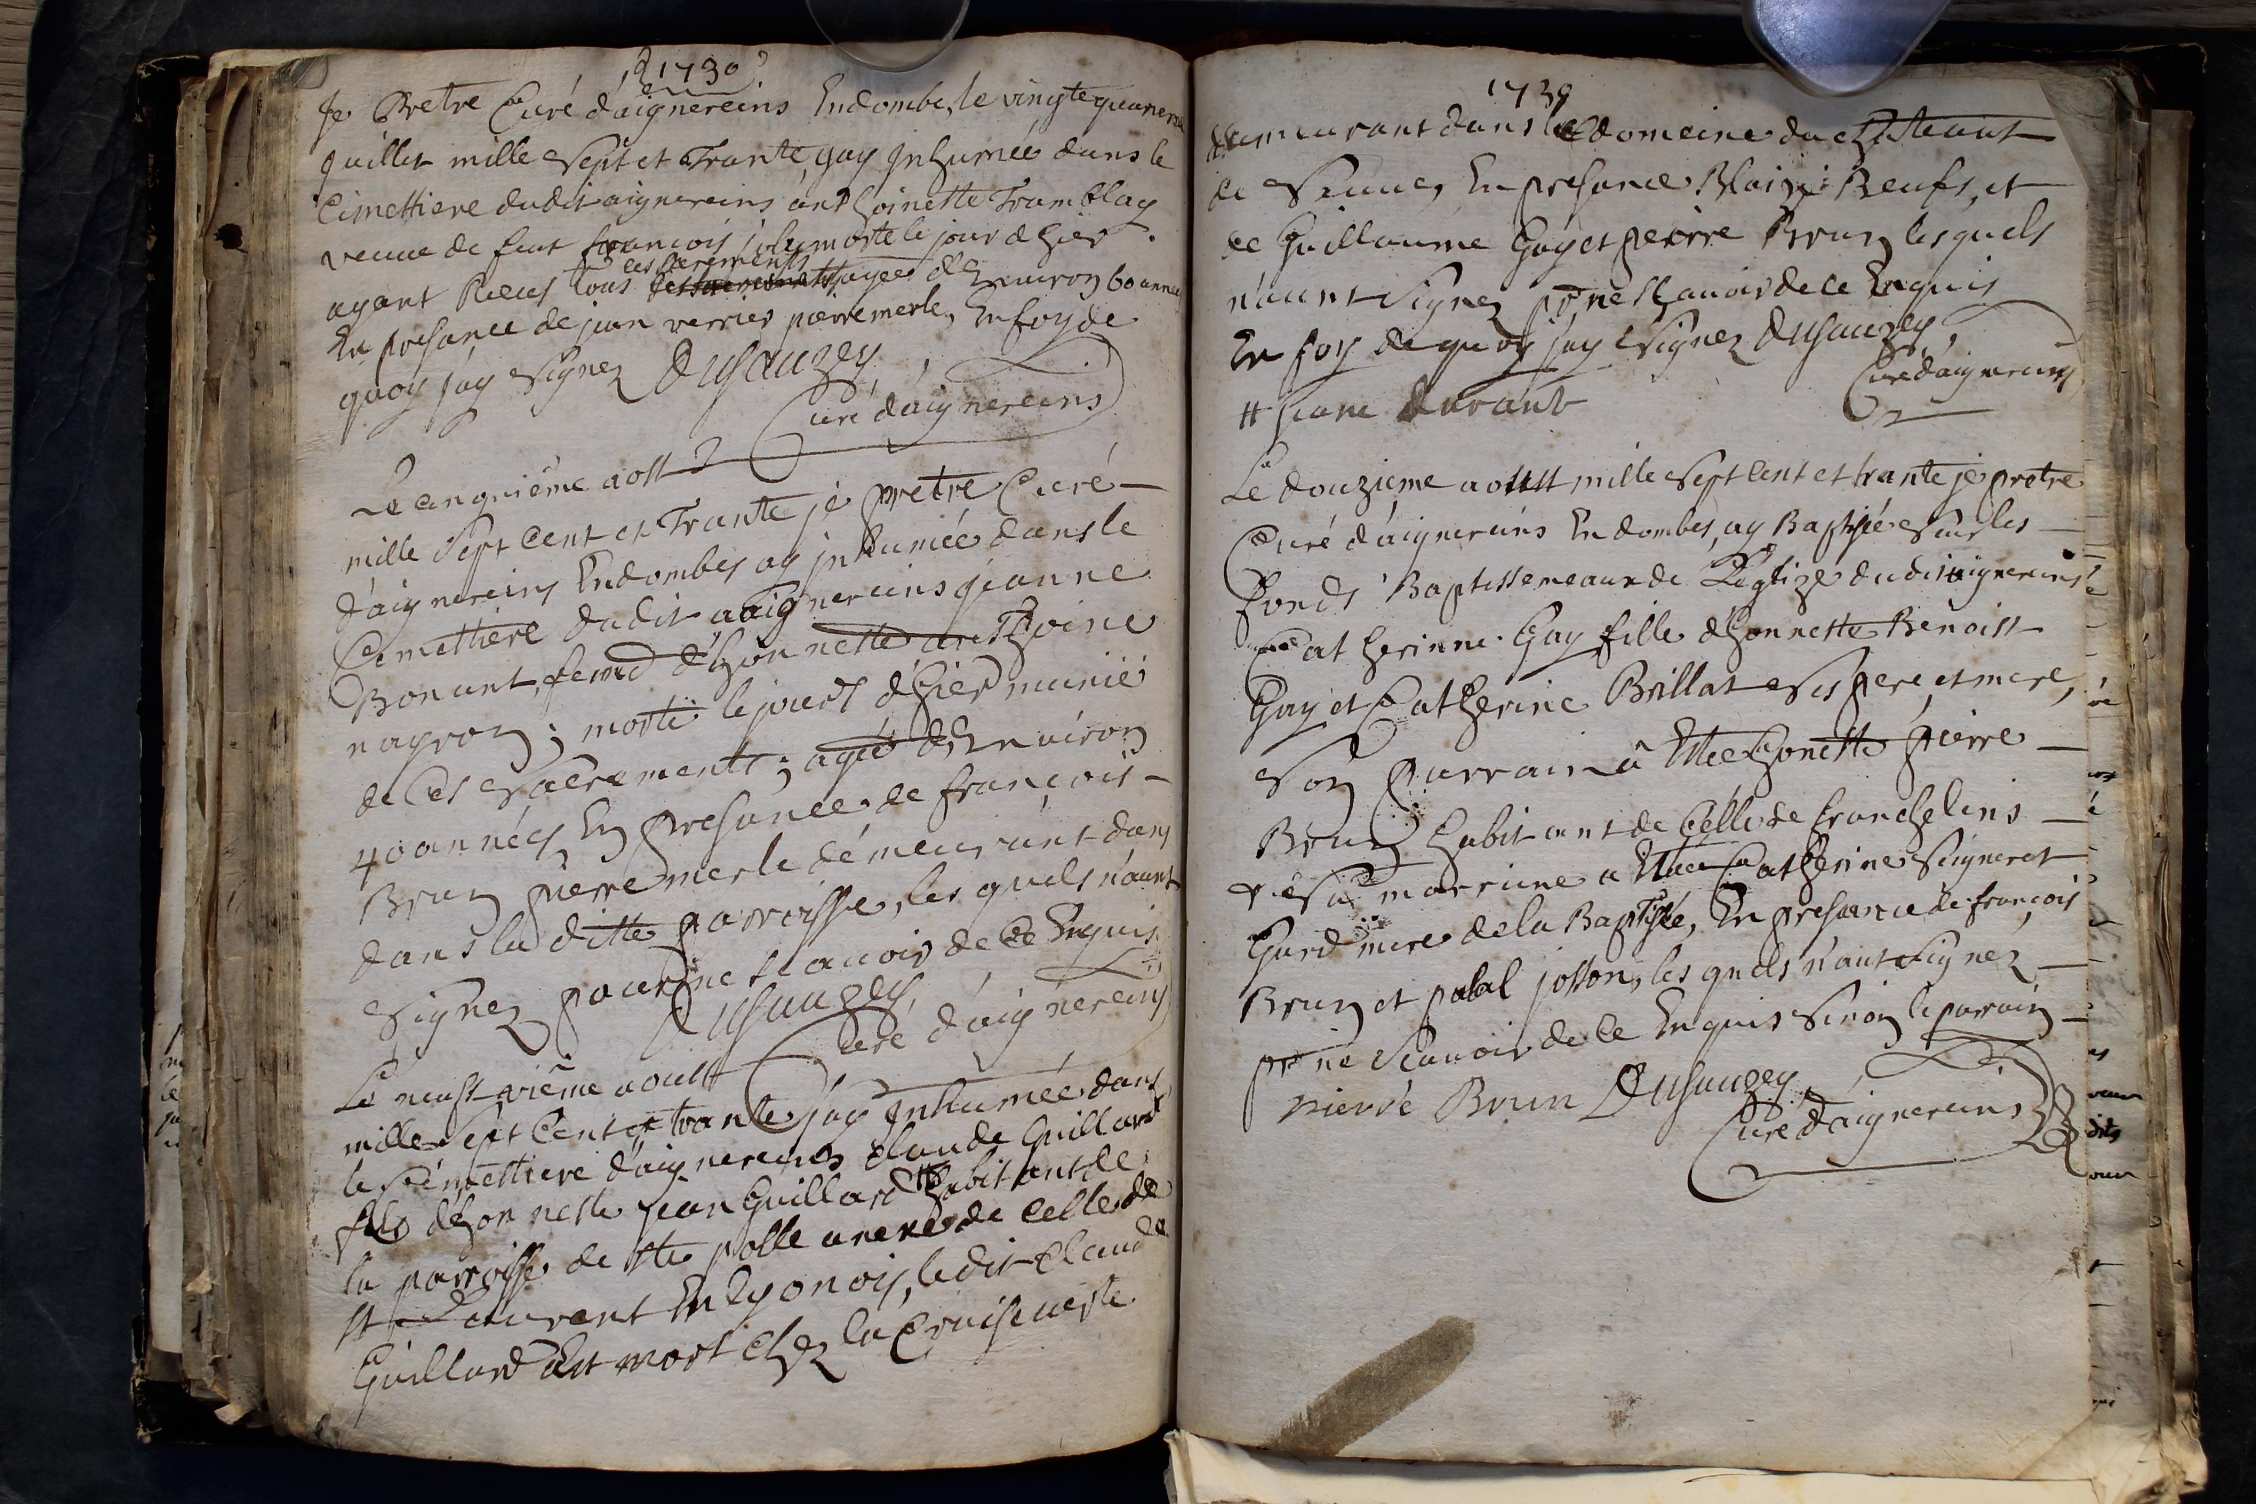 1730
Je Pretre Curé d'aignereins En dombe, le vingte quatrieme
Juillet mille Sept et Trante, J'ay Inhumée dans le
Cimettiere dudit aignereins anthoinette Tramblay
veuve de feut francois morte le jour d'hier
ces sacrements
ayant Receus tous agee d'Environ 60 années
En presance de jean verrier pierre merle, En foy de
quoy j'ay Signez Dusauzey
Curé d'aignereins
Le cinquiême aost
mille Sept Cent et Trante je pretre Curé
d'aignereins En dombes ay jnhumée dans le
Cemettiere dudit aaignereins jeanne
Bonant, femme d'honnette anthoine
nayron; morte le jourt d'hier munie
de Ces Sacrements; agée d'Environ
40 années En presance de françois
Brun pierre merle démeurant dans
dans la ditte parroisse, les quels n'aunt
Signez pour ne scavoir de ce Enquis
Dusauzey
Curé d'aignereins
Le neufvième aoust
mille Sept Cent et trante j'ay Inhumée dans
le Sémettiere d'aignereins Claude Guillard
fils d'honneste jean Guillard tt habitant de
la parroisse de Ste polle anexe de Celle de
St Laurent En Lyonois, ledit Claude
Guillard Est mort chez la
1730
demeurant dans le domeine du
de En presance Blaize Beufs, et
de Guillaume Gay et peirre Brun les quels
n'aunt Signez pr ne Scavoir de ce Enquis
En foy de quoy j'ay Signez Dusauzey
Curé d'aignereins
tt jeane durant
Le douzieme aoustt mille Sept Cent et trante je pretre
Curé d'aignereins En dombes, ay Baptisée Sur les
fonds Baptissemeaux de L'eglize dudit aignereins
Catherinne Gay fille d'honneste Benoist
Gay et Catherine Brillat Ses pere et mere,
Son Parrain â Estee honette pierre
Brun habitant de Celle de franchelins
et Sa marrine a Estee Catherine Seigneret
Gard mere de la Baptisée, En presance de françois
Brun et josson, les quels n'aunt Signéz
pr ne Scavoir de ce Enquis Sinon le parrain
pierre Brun Dusauzey
Curé d'aignereins